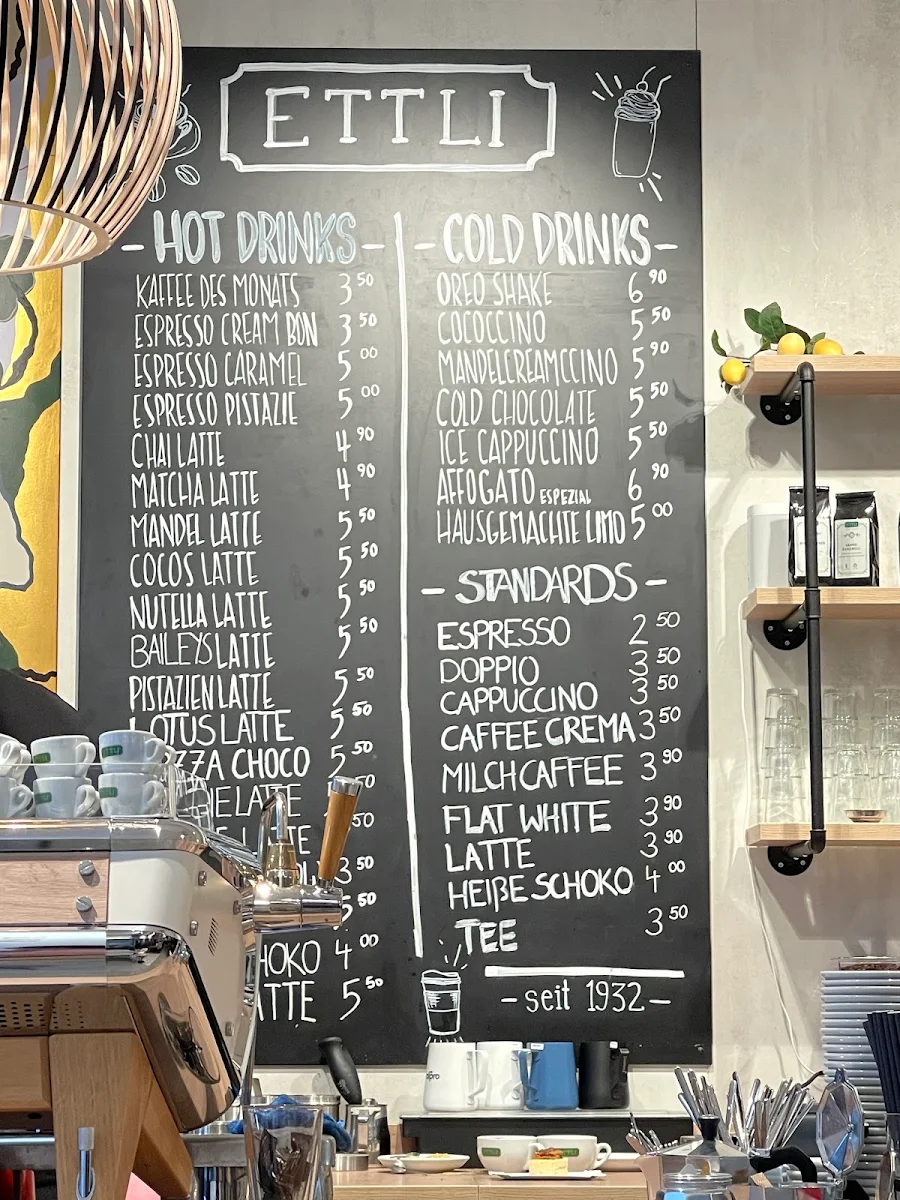 ETTLI
- HOT DRINKS -
KAFFEE DES MONATS 3 50
ESPRESSO CREAM BON 3 50
ESPRESSO CARAMEL 5 00
ESPRESSO PISTAZIE 5 00
CHAI LATTE 4 90
MATCHA LATTE 4 90
MANDEL LATTE 5 50
COCOS LATTE 5 50
NUTELLA LATTE 5 50
BAILEYS LATTE 5 50
PISTAZIEN LATTE 5 50
LOTUS LATTE 5 50
CHOCO 5 50
LATTE
50
3 50
5 50
HOKO 4 00
ATTE 5 50
- COLD DRINKS -
OREO SHAKE 6 90
COCOCCINO 5 50
MANDELCREAMCCINO 5 90
COLD CHOCOLATE 5 50
ICE CAPPUCCINO 5 50
AFFOGATO ESPEZIAL 6 90
HAUSGEMACHTE LIMO 5 00
- STANDARDS -
ESPRESSO 2 50
DOPPIO 3 50
CAPPUCCINO 3 50
CAFFEE CREMA 3 50
MILCHCAFFEE 3 90
FLAT WHITE 3 90
LATTE 3 90
HEIßE SCHOKO 4 00
TEE 3 50
- seit 1932 -
ETTLI
ETTLI